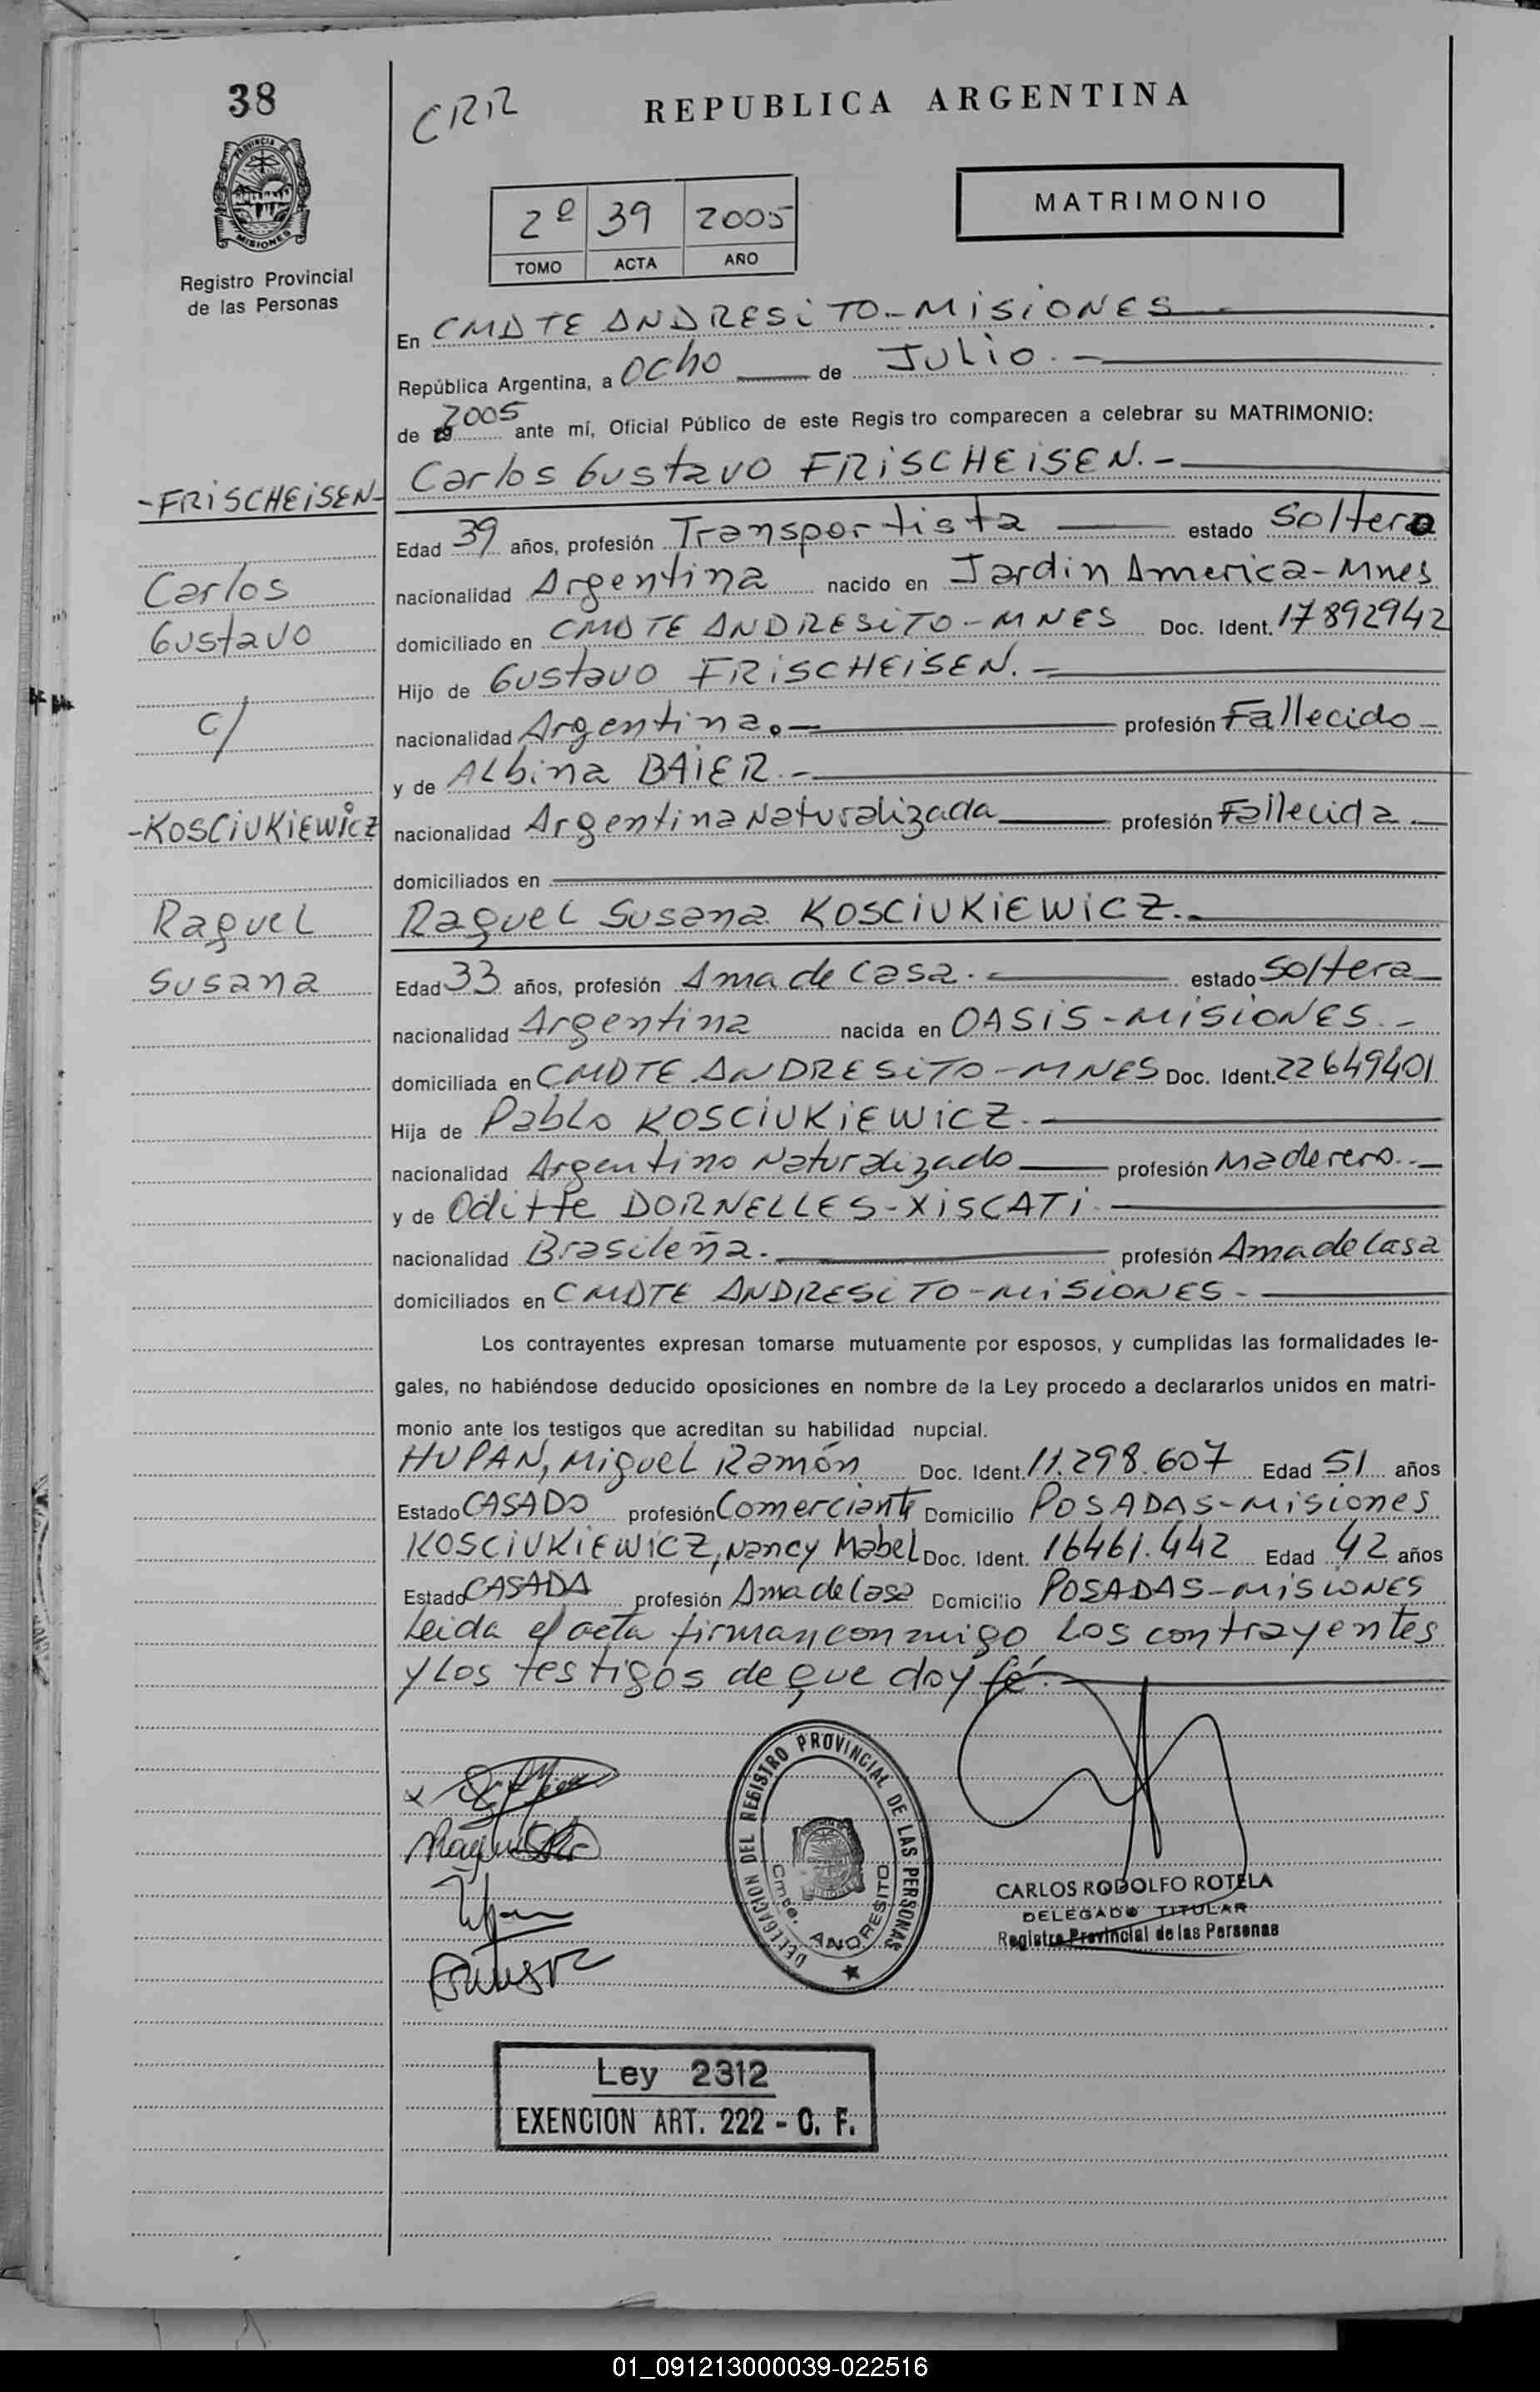 38
CRR
REPUBLICA ARGENTINA
PROVINCIA DE
MISIONES
Registro Provincial
de las Personas
2º 39 2005
TOMO ACTA AÑO
MATRIMONIO
En CMDTE ANDRESiTO-MiSiONES
República Argentina, a Ocho de JULio.-
de 19 2005 ante mí, Oficial Público de este Regis tro comparecen a celebrar su MATRIMONIO:
Carlos Gustavo FRiSCHEiSEN.-
-FRiSCHEiSEN-
Edad 39 años, profesión Transportista estado Soltero
Carlos
nacionalidad Argentina nacido en Jardin America-Mnes
Gustavo
domiciliado en CMDTE ANDRESiTO-MNES Doc. Ident. 17892942
Hijo de Gustavo FRiSCHEiSEN.-
c/
nacionalidad Argentina.- profesión Fallecido-
y de ALbina BAiER.-
-KOSCiUKiEWicZ
nacionalidad Argentina Naturalizada profesión Fallecida.-
domiciliados en
Raquel Susana KOSCiUKiEWicZ.-
Raquel
Susana
Edad 33 años, profesión Ama de Casa.- estado Soltera
nacionalidad Argentina nacida en OASiS-MiSiONES.-
domiciliada en CMDTE ANDRESiTO-MNES Doc. Ident. 22649401
Hija de PabLo KOSCiUKiEWicZ.-
nacionalidad Argentino Naturalizado profesión Maderero.-
y de Oditte DORNELLES-XiSCATi.
nacionalidad Brasileña.- profesión Ama de Casa
domiciliados en CMDTE ANDRESiTO-MiSiONES-
Los contrayentes expresan tomarse mutuamente por esposos, y cumplidas las formalidades le-
gales, no habiéndose deducido oposiciones en nombre de la Ley procedo a declararlos unidos en matri-
monio ante los testigos que acreditan su habilidad nupcial.
HUPAN, MigueL Ramón Doc. Ident. 11.298.607 Edad 51 años
Estado CASADO profesión Comerciante Domicilio POSADAS-Misiones
KOSCiUKiEWicZ, Nancy Mabel Doc. Ident. 16461.442 Edad 42 años
Estado CASADA profesión Ama de Casa Domicilio POSADAS-MiSiONES
Leida el acta firman conmigo Los contrayentes
y Los testigos de que doy fé.-
DELEGACION DEL REGISTRO PROVINCIAL DE LAS PERSONAS
Cmte. ANDRESITO
CARLOS RODOLFO ROTELA
DELEGADO TITULAR
Registro Provincial de las Personas
Ley 2312
EXENCION ART. 222 - C. F.
01_091213000039-022516